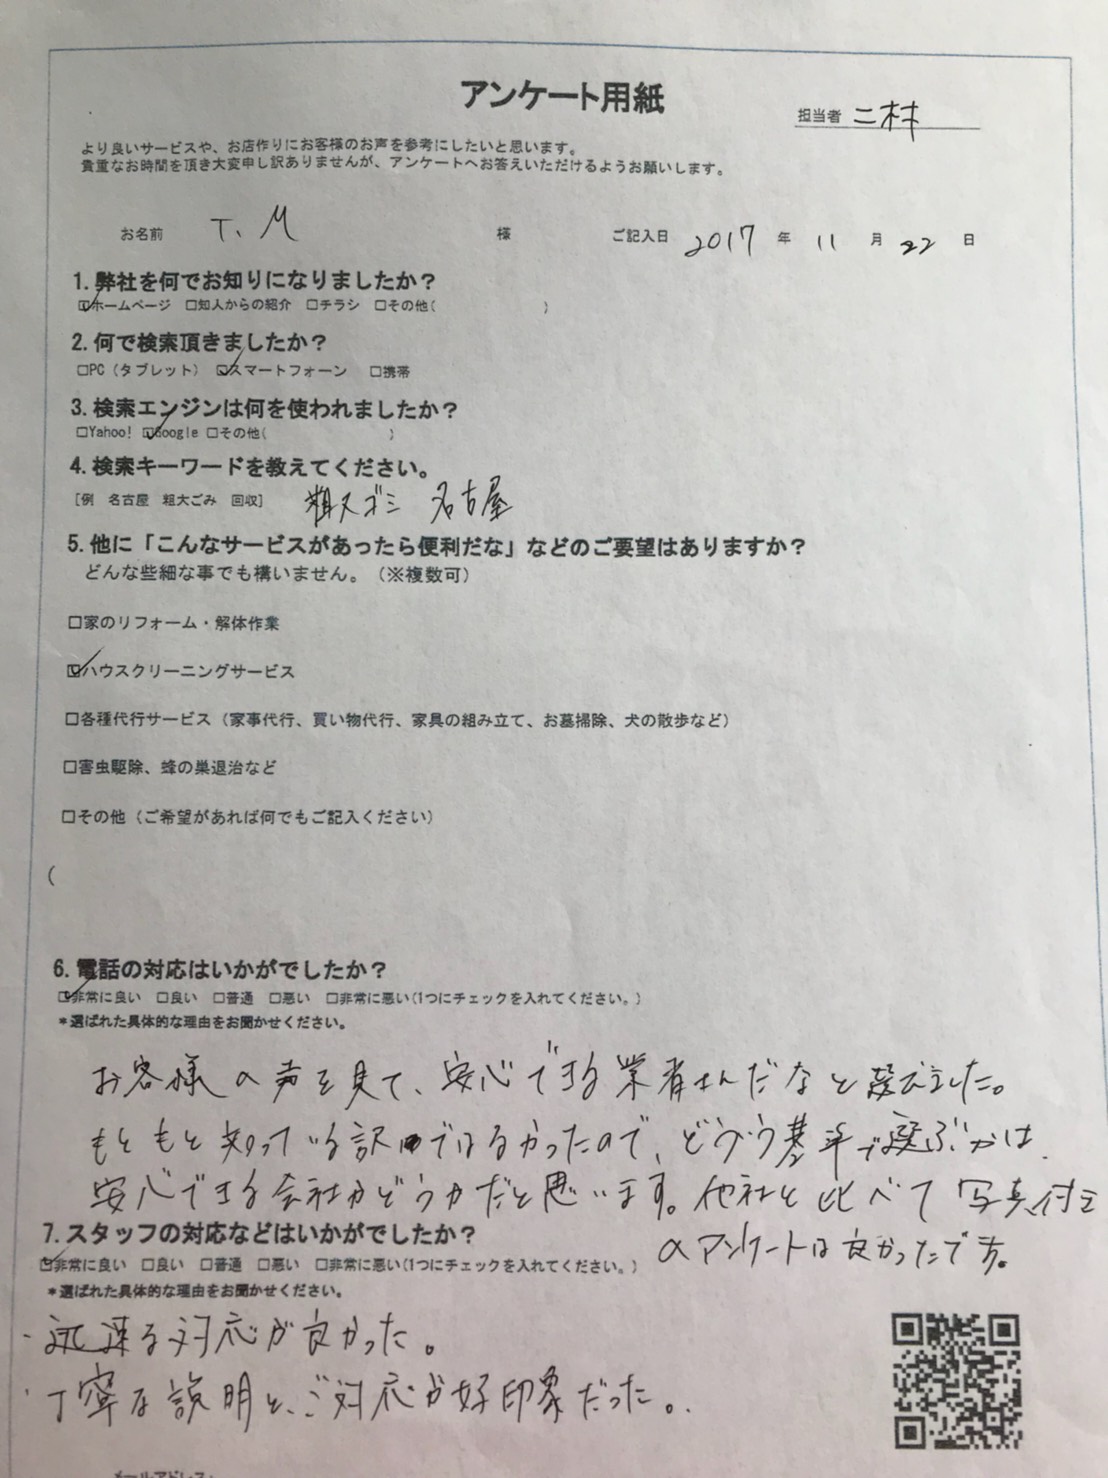 アンケート用紙
担当者 二村
より良いサービスや、お店作りにお客様のお声を参考にしたいと思います。
貴重なお時間を頂き大変申し訳ありませんが、アンケートへお答えいただけるようお願いします。
お名前 T.M 様 ご記入日 2017 年 11 月 22 日
1.弊社を何でお知りになりましたか？
☑ホームページ □知人からの紹介 □チラシ □その他( )
2.何で検索頂きましたか？
□PC（タブレット） ☑スマートフォーン □携帯
3.検索エンジンは何を使われましたか？
□Yahoo! ☑Google □その他( )
4.検索キーワードを教えてください。
[例 名古屋 粗大ごみ 回収] 粗大ゴミ 名古屋
5.他に「こんなサービスがあったら便利だな」などのご要望はありますか？
どんな些細な事でも構いません。（※複数可）
□家のリフォーム・解体作業
☑ハウスクリーニングサービス
□各種代行サービス（家事代行、買い物代行、家具の組み立て、お墓掃除、犬の散歩など）
□害虫駆除、蜂の巣退治など
□その他（ご希望があれば何でもご記入ください）
(
6.電話の対応はいかがでしたか？
☑非常に良い □良い □普通 □悪い □非常に悪い(1つにチェックを入れてください。)
*選ばれた具体的な理由をお聞かせください。
お客様の声を見て、安心できる業者さんだなと選びました。
もともと知っている訳ではなかったので、どういう基準で選ぶかは
安心できる会社かどうかだと思います。他社と比べて写真付き
のアンケートは良かったです。
7.スタッフの対応などはいかがでしたか？
☑非常に良い □良い □普通 □悪い □非常に悪い(1つにチェックを入れてください。)
*選ばれた具体的な理由をお聞かせください。
・迅速な対応が良かった。
・丁寧な説明と、ご対応が好印象だった。
メールアドレス: